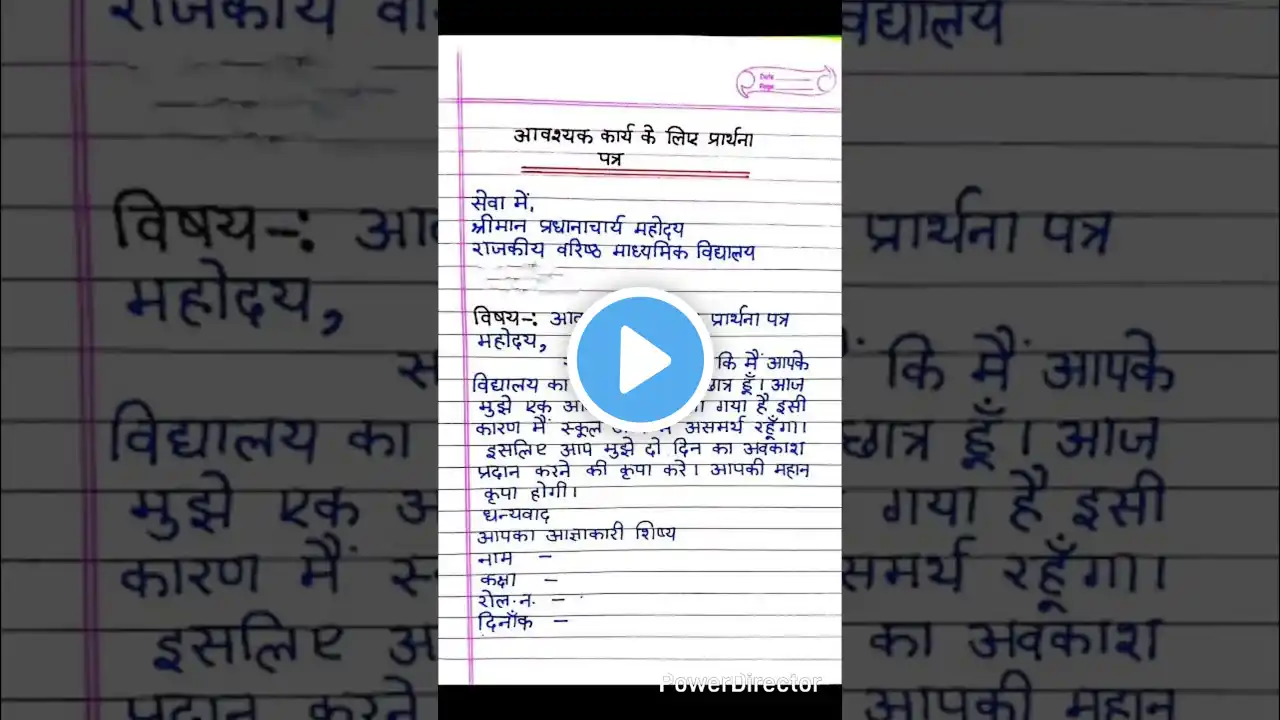 आवश्यक कार्य के लिए प्रार्थना
पत्र
सेवा में,
श्रीमान प्रधानाचार्य महोदय
राजकीय वरिष्ठ माध्यमिक विद्यालय
विषय-: प्रार्थना पत्र
महोदय,
कि मैं आपके
विद्यालय का छात्र हूँ। आज
मुझे एक गया है इसी
कारण मैं स्कूल असमर्थ रहूँगा।
इसलिए आप मुझे दो दिन का अवकाश
प्रदान करने की कृपा करे। आपकी महान
कृपा होगी।
धन्यवाद
आपका आज्ञाकारी शिष्य
नाम -
कक्षा -
रोल.न. -
दिनाँक -
PowerDirector